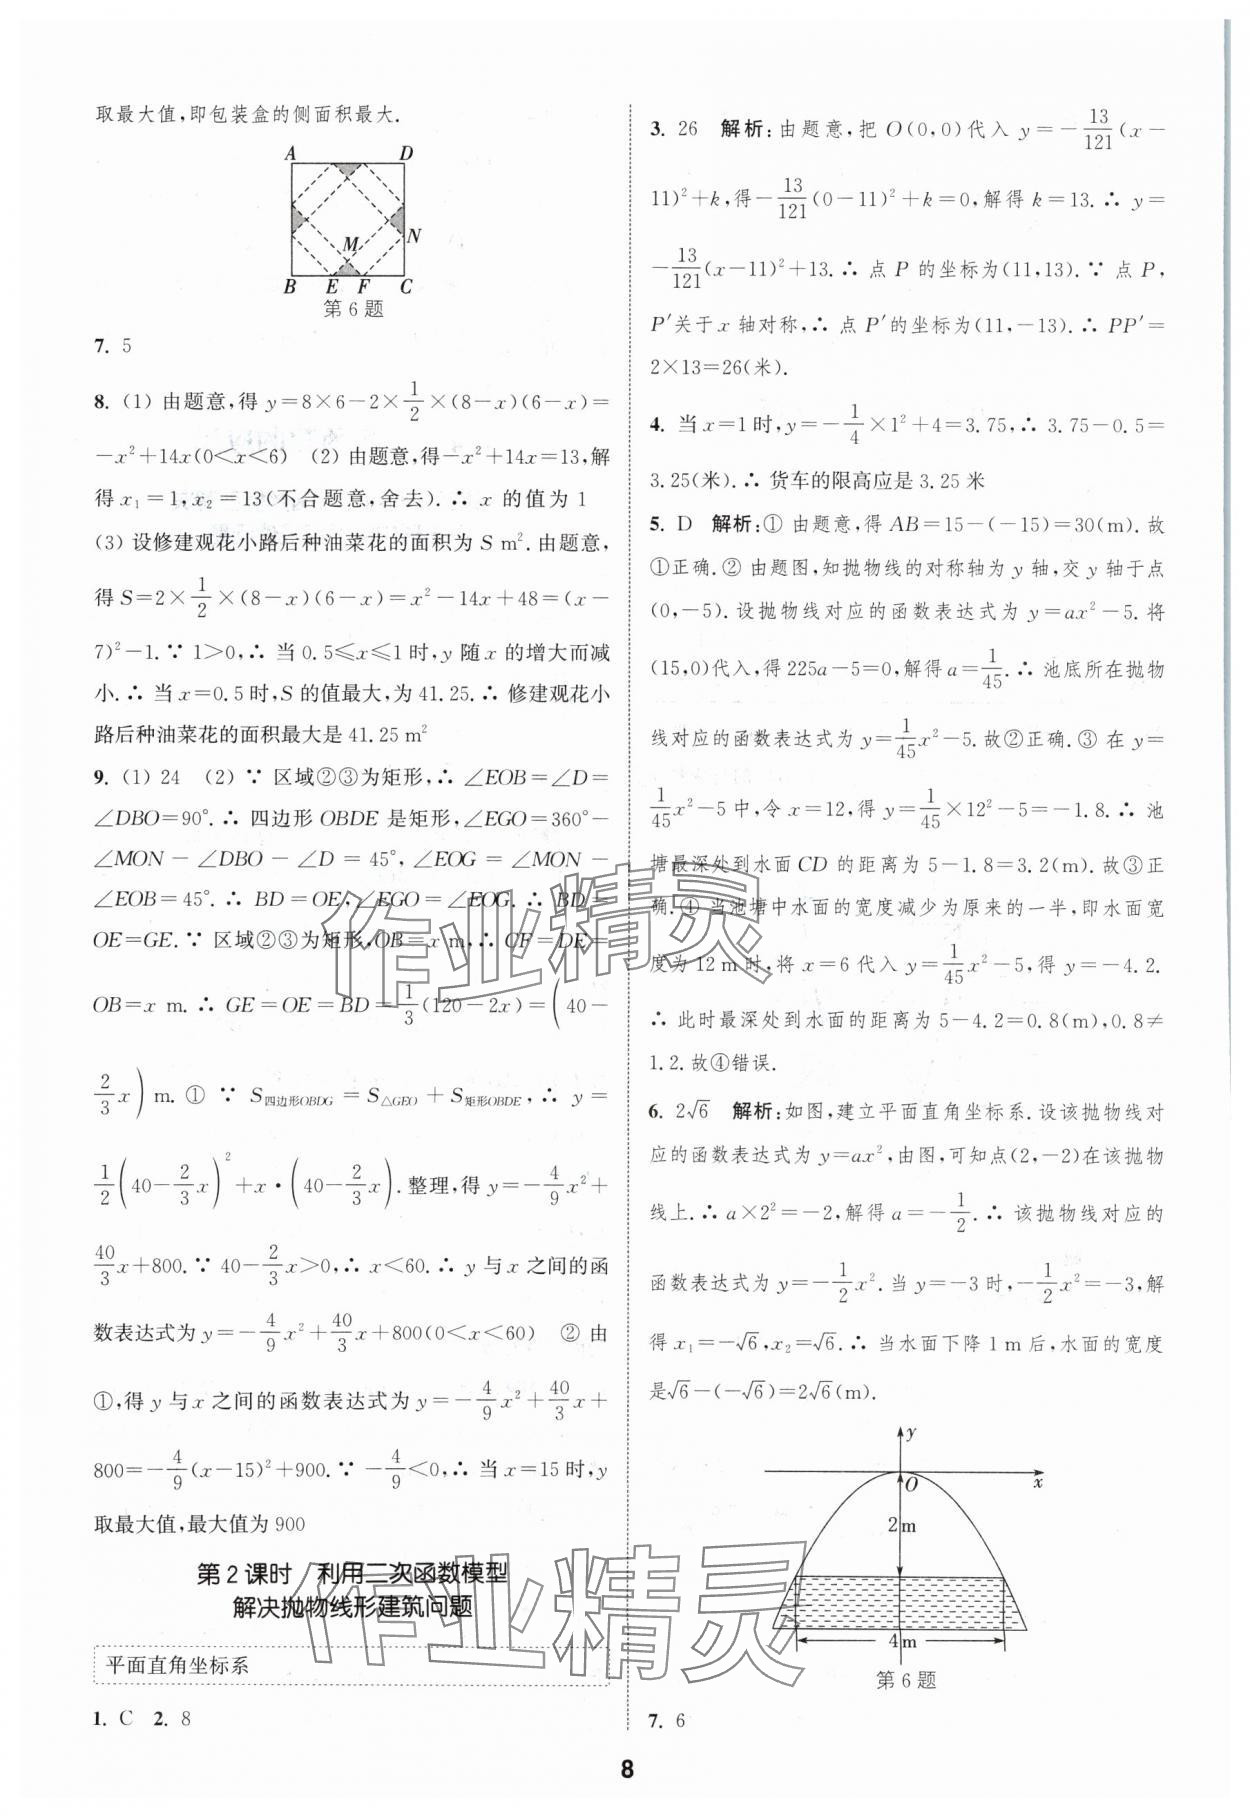 取最大值,即包装盒的侧面积最大.
A D
M N
B E F C
第6题
7. 5
8. (1) 由题意,得 y=8×6-2×1/2×(8-x)(6-x)=
-x²+14x(0<x<6) (2) 由题意,得-x²+14x=13,解
得 x₁=1,x₂=13(不合题意,舍去).∴ x 的值为 1
(3) 设修建观花小路后种油菜花的面积为 S m².由题意,
得 S=2×1/2×(8-x)(6-x)=x²-14x+48=(x-
7)²-1.∵ 1>0,∴ 当 0.5≤x≤1 时,y 随 x 的增大而减
小.∴ 当 x=0.5 时,S 的值最大,为 41.25.∴ 修建观花小
路后种油菜花的面积最大是 41.25 m²
9. (1) 24 (2) ∵ 区域②③为矩形,∴ ∠EOB=∠D=
∠DBO=90°.∴ 四边形 OBDE 是矩形,∠EGO=360°-
∠MON-∠DBO-∠D=45°,∠EOG=∠MON-
∠EOB=45°.∴ BD=OE,∠EGO=∠EOG.∴ BD=
OE=GE.∵ 区域②③为矩形,OB=x m,∴ CF=DE=
OB=x m.∴ GE=OE=BD=1/3(120-2x)=(40-
2/3x) m. ① ∵ S四边形OBDG=S△GEO+S矩形OBDE,∴ y=
1/2(40-2/3x)²+x·(40-2/3x).整理,得 y=-4/9x²+
40/3x+800.∵ 40-2/3x>0,∴ x<60.∴ y 与 x 之间的函
数表达式为 y=-4/9x²+40/3x+800(0<x<60) ② 由
①,得 y 与 x 之间的函数表达式为 y=-4/9x²+40/3x+
800=-4/9(x-15)²+900.∵ -4/9<0,∴ 当 x=15 时,y
取最大值,最大值为 900
第2课时 利用二次函数模型
解决抛物线形建筑问题
平面直角坐标系
1. C 2. 8
3. 26 解析:由题意,把 O(0,0)代入 y=-13/121(x-
11)²+k,得-13/121(0-11)²+k=0,解得 k=13.∴ y=
-13/121(x-11)²+13.∴ 点 P 的坐标为(11,13).∵ 点 P,
P′关于 x 轴对称,∴ 点 P′的坐标为(11,-13).∴ PP′=
2×13=26(米).
4. 当 x=1 时,y=-1/4×1²+4=3.75,∴ 3.75-0.5=
3.25(米).∴ 货车的限高应是 3.25 米
5. D 解析:① 由题意,得 AB=15-(-15)=30(m).故
①正确.② 由题图,知抛物线的对称轴为 y 轴,交 y 轴于点
(0,-5).设抛物线对应的函数表达式为 y=ax²-5.将
(15,0)代入,得 225a-5=0,解得 a=1/45.∴ 池底所在抛物
线对应的函数表达式为 y=1/45x²-5.故②正确.③ 在 y=
1/45x²-5 中,令 x=12,得 y=1/45×12²-5=-1.8.∴ 池
塘最深处到水面 CD 的距离为 5-1.8=3.2(m).故③正
确.④ 当池塘中水面的宽度减少为原来的一半,即水面宽
度为 12 m 时,将 x=6 代入 y=1/45x²-5,得 y=-4.2.
∴ 此时最深处到水面的距离为 5-4.2=0.8(m),0.8≠
1.2.故④错误.
6. 2√6 解析:如图,建立平面直角坐标系.设该抛物线对
应的函数表达式为 y=ax²,由图,可知点(2,-2)在该抛物
线上.∴ a×2²=-2,解得 a=-1/2.∴ 该抛物线对应的
函数表达式为 y=-1/2x².当 y=-3 时,-1/2x²=-3,解
得 x₁=-√6,x₂=√6.∴ 当水面下降 1 m 后,水面的宽度
是√6-(-√6)=2√6(m).
y
O x
2 m
4 m
第6题
7. 6
8
作业精灵
作业精灵